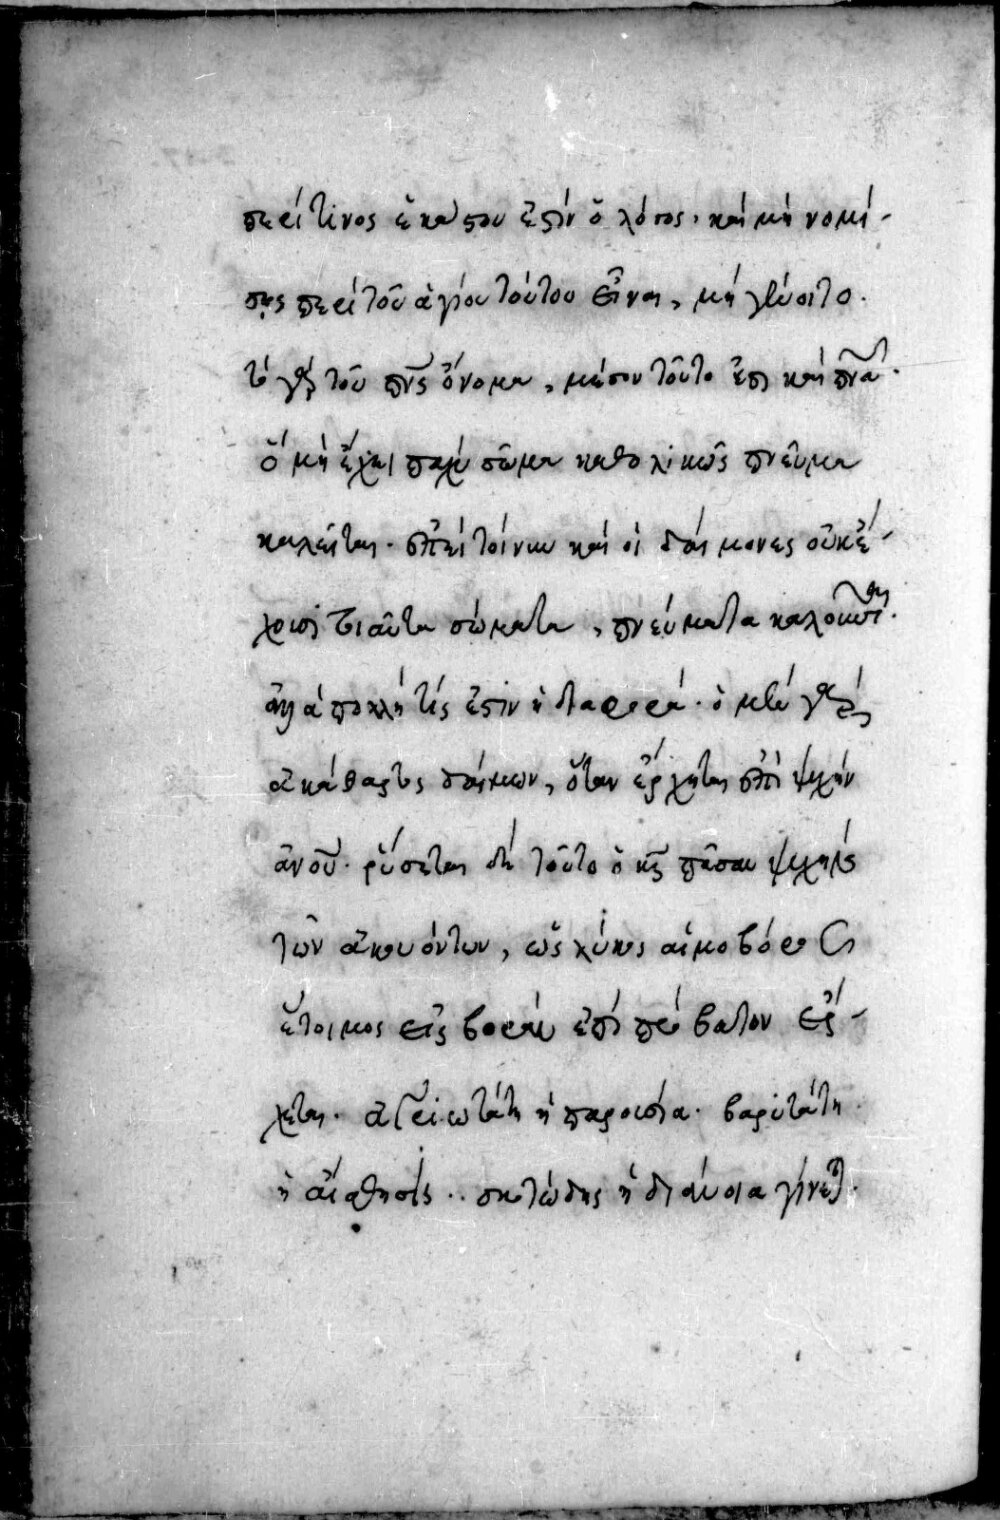 περὶ τίνος ἑκάστου ἐστὶν ὁ λόγος· καὶ μὴ νομί-
σῃς περὶ τοῦ ἁγίου τούτου εἶναι, μὴ γένοιτο.
τὸ γὰρ τοῦ πνς ὄνομα, μέσον τοῦτο ἐστι καὶ πνα.
ὃ μὴ ἔχει παχὺ σῶμα καθολικῶς πνεῦμα
καλεῖται. ἐπεὶ τοίνυν καὶ οἱ δαίμονες οὐκ ἔ-
χουσι τοιαῦτα σώματα, πνεύματα καλοῦνται.
ἀλλὰ πολλή τίς ἐστιν ἡ διαφορά. ὁ μὲν γὰρ
ἀκάθαρτος δαίμων, ὅταν ἔρχηται ἐπὶ ψυχὴν
ἀνου. ῥύσεται δὲ τοῦτο ὁ κς πᾶσαν ψυχῆς
τῶν ἀκουόντων, ὡς λύκος αἱμοβόρος
ἕτοιμος εἰς βορὰν ἐπὶ πρόβατον ἔρ-
χεται. ἀγριωτάτη ἡ παρουσία. βαρυτάτη
ἡ αἴσθησις. σκοτώδης ἡ διάνοια γίνεται.